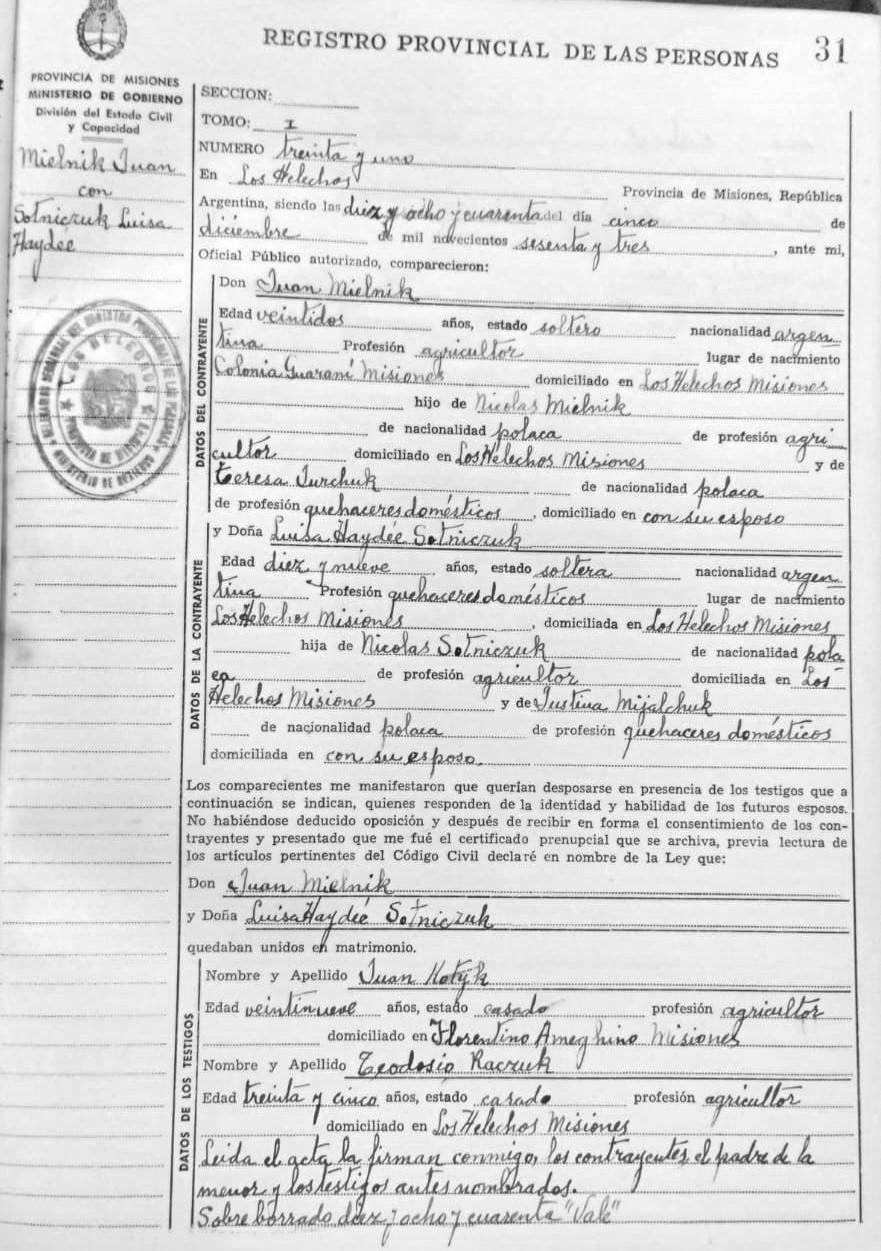 REGISTRO PROVINCIAL DE LAS PERSONAS 31
PROVINCIA DE MISIONES
MINISTERIO DE GOBIERNO
División del Estado Civil
y Capacidad
Mielnik Juan
con
Sotniczuk Luisa
Haydée
SECCION:
TOMO: I
NUMERO treinta y uno
En Los Helechos Provincia de Misiones, República
Argentina, siendo las diez y ocho y cuarenta del día cinco de
diciembre de mil novecientos sesenta y tres, ante mi,
Oficial Público autorizado, comparecieron:
DATOS DEL CONTRAYENTE
Don Juan Mielnik
Edad veintidos años, estado soltero nacionalidad argen
tina Profesión agricultor lugar de nacimiento
Colonia Guaraní Misiones domiciliado en Los Helechos Misiones
hijo de Nicolas Mielnik
de nacionalidad polaca de profesión agri
cultor domiciliado en Los Helechos Misiones y de
Teresa Jurchuk de nacionalidad polaca
de profesión quehaceres domésticos, domiciliado en con su esposo
DATOS DE LA CONTRAYENTE
y Doña Luisa Haydée Sotniczuk
Edad diez y nueve años, estado soltera nacionalidad argen
tina Profesión quehaceres domésticos lugar de nacimiento
Los Helechos Misiones, domiciliada en Los Helechos Misiones
hija de Nicolas Sotniczuk de nacionalidad pola
ca de profesión agricultor domiciliado en Los
Helechos Misiones y de Justina Mijalchuk
de nacionalidad polaca de profesión quehaceres domésticos
domiciliada en con su esposo.
Los comparecientes me manifestaron que querían desposarse en presencia de los testigos que a
continuación se indican, quienes responden de la identidad y habilidad de los futuros esposos.
No habiéndose deducido oposición y después de recibir en forma el consentimiento de los con-
trayentes y presentado que me fué el certificado prenupcial que se archiva, previa lectura de
los artículos pertinentes del Código Civil declaré en nombre de la Ley que:
Don Juan Mielnik
y Doña Luisa Haydée Sotniczuk
quedaban unidos en matrimonio.
DATOS DE LOS TESTIGOS
Nombre y Apellido Juan Kotyk
Edad veintinueve años, estado casado profesión agricultor
domiciliado en Florentino Ameghino Misiones
Nombre y Apellido Teodosio Raczuk
Edad treinta y cinco años, estado casado profesión agricultor
domiciliado en Los Helechos Misiones
Leida el acta la firman conmigo, los contrayentes, el padre de la
menor y los testigos antes nombrados.
Sobre borrado diez y ocho y cuarenta "Vale"